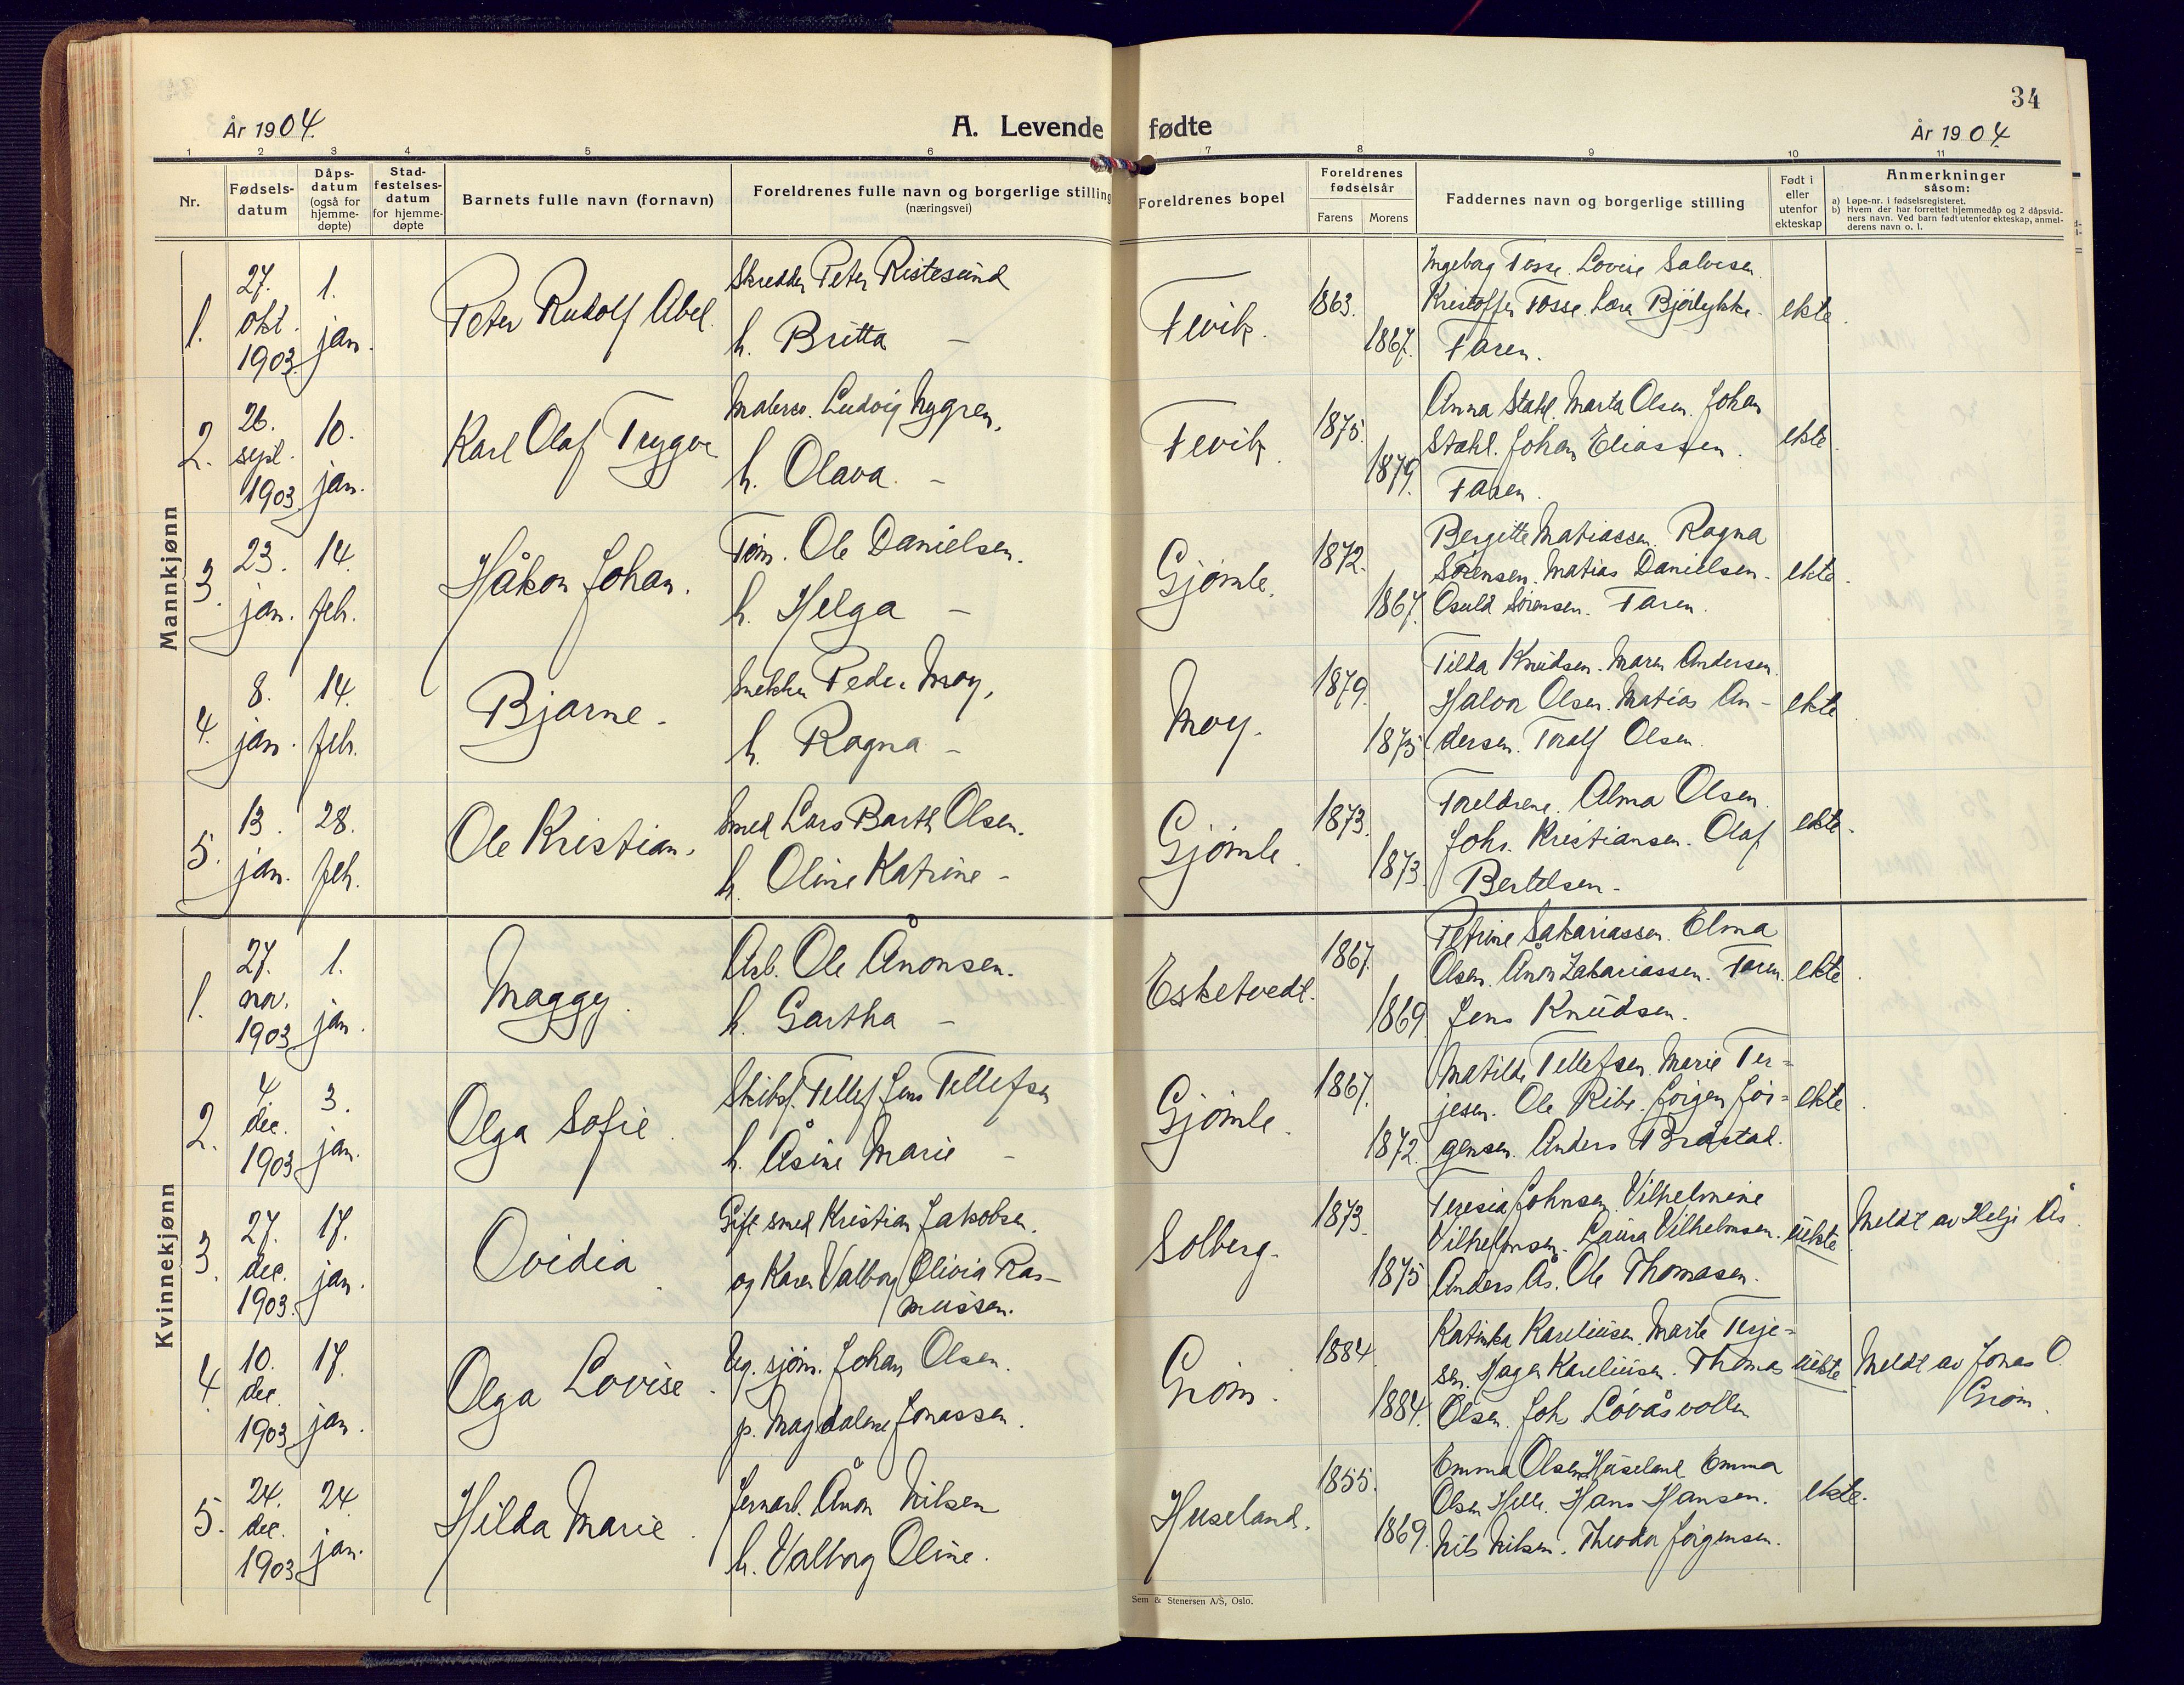 34
År 1904.
A. Levende fødte
År 1904.
1 2 3 4 5 6 7 8 9 10 11
Nr.
Fødsels-
datum
Dåps-
datum
(også for
hjemme-
døpte)
Stad-
festelses-
datum
for hjemme-
døpte
Barnets fulle navn (fornavn)
Foreldrenes fulle navn og borgerlige stilling
(næringsvei)
Foreldrenes bopel
Foreldrenes
fødselsår
Farens Morens
Faddernes navn og borgerlige stilling
Født i
eller
utenfor
ekteskap
Anmerkninger
såsom:
a) Løpe-nr. i fødselsregisteret.
b) Hvem der har forrettet hjemmedåp og 2 dåpsvid-
ners navn. Ved barn født utenfor ekteskap, anmel-
derens navn o. l.
Mannkjønn
1.
27.
okt.
1903.
1.
jan.
Peter Rudolf Abel.
Skredder Peter Ristesund
h. Britta –
Fevik.
1863.
1867.
Ingeborg Fosse. Lovise Salvesen.
Kristoffer Fosse. Lars Bjørlykke.
Faren.
ekte.
2.
26.
sept.
1903
10.
jan.
Karl Olaf Trygve
Malersv. Ludvig Nygren.
h. Olava. –
Fevik.
1875.
1879.
Anna Stahl. Marta Olsen. Johan
Stahl. Johan Eliassen.
Faren.
ekte.
3.
23.
jan.
14.
feb.
Håkon Johan.
Tøm. Ole Danielsen.
h. Helga –
Gjømle.
1872.
1867.
Bergitte Matiassen. Ragna
Sørensen. Matias Danielsen.
Osuld Sørensen. Faren.
ekte.
4.
8.
jan.
14.
feb.
Bjarne.
Snekker Peder Moy,
h. Ragna –
Moy.
1879.
1875
Tilda Knudsen. Maren Andersen.
Halvor Olsen. Matias An-
dersen. Toralf Olsen.
ekte.
5.
13.
jan.
28.
feb.
Ole Kristian.
Smed Lars Barth Olsen.
h. Oline Katrine –
Gjømle.
1873.
1873.
Foreldrene. Alma Olsen.
Johs. Kristiansen. Olaf
Bertelsen.
ekte.
Kvinnekjønn
1.
27.
nov.
1903
1.
jan.
Maggy.
Arb. Ole Ånonsen.
h. Gartha –
Esketvedt.
1867.
1869
Petrine Sakariassen. Elma
Olsen. Ånon Zakariassen. Faren.
Jens Knudsen.
ekte.
2.
4.
dec.
1903
3.
jan.
Olga Sofie.
Skibsf. Tellef Jens Tellefsen
h. Åsine Marie –
Gjømle.
1867.
1872.
Matilde Tellefsen. Marie Ter=
jesen. Ole Ribe. Jørgen Jør=
gensen. Anders Bråstad.
ekte.
3.
27.
dec.
1903.
17.
jan.
Ovidia.
Gift smed Kristian Jakobsen.
og Karen Valborg Olivia Ras-
mussen.
Solberg.
1873.
1875
Teresia Johnsen. Vilhelmine
Vilhelmsen. Laura Vilhelmsen.
Anders Ås. Ole Thomasen.
uekte
Meldt av Helje Ås.
4.
10.
dec.
1903
17.
jan.
Olga Lovise.
Ug. sjøm. Johan Olsen.
p. Magdalene Jonassen.
Grøm.
1884.
1884.
Katinka Kareliusen. Marte Terje=
sen. Hagen Kareliusen. Thomas
Olsen. Joh. Løvåsvollen
uekte
Meldt av Jonas O.
Grøm.
5.
24.
dec.
1903
24
jan.
Hilda Marie.
Jernarb. Ånon Nilsen
h. Valborg Oline.
Huseland.
1855.
1869.
Emma Olsen Huseland. Emma
Olsen Helle. Hans Hansen.
Nils Nilsen. Theodor Jørgensen.
ekte.
Sem & Stenersen A/S, Oslo.